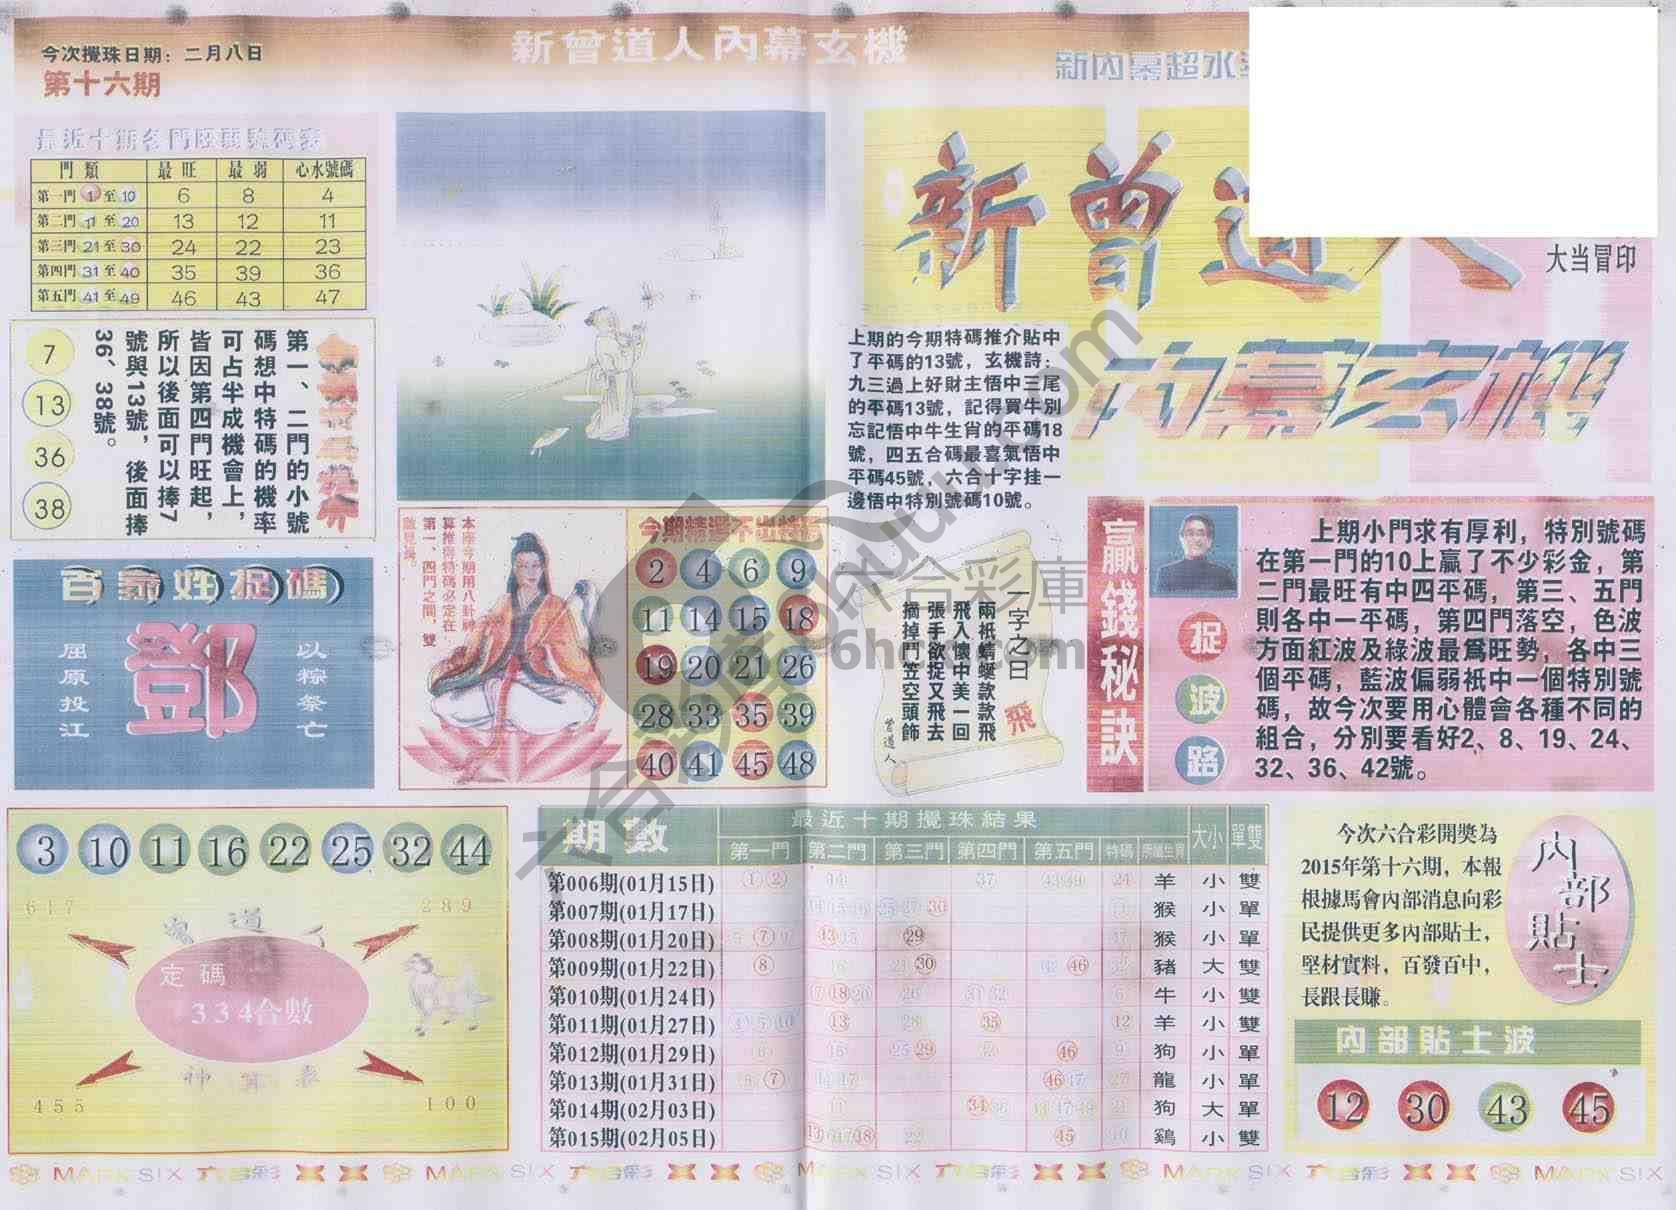 今次攪珠日期：二月八日
第十六期
新曾道人內幕玄機
新內幕超水
最近十期各門旺弱號碼表
門類 最旺 最弱 心水號碼
第一門 1 至 10 6 8 4
第二門 11 至 20 13 12 11
第三門 21 至 30 24 22 23
第四門 31 至 40 35 39 36
第五門 41 至 49 46 43 47
7
13
36
38
第一、二門的小號
碼想中特碼的機率
可占半成機會上，
皆因第四門旺起，
所以後面可以捧7
號與13號，後面捧
36、38號。
百家姓捉碼
屈原投江
鄧
以粽祭亡
本座今期用八卦神
算推得特碼必定在
第一、四門之間，雙
數見長。
今期精選不出特碼
2 4 6 9
11 14 15 18
19 20 21 26
28 33 35 39
40 41 45 48
新曾道人
內幕玄機
大当冒印
上期的今期特碼推介貼中
了平碼的13號，玄機詩：
九三過上好財主悟中三尾
的平碼13號，記得買牛別
忘記悟中牛生肖的平碼18
號，四五合碼最喜氣悟中
平碼45號，六合十字挂一
邊悟中特別號碼10號。
一字之曰 飛
兩衹蜻蜓款款飛
飛入懷中美一回
張手欲捉又飛去
摘掉鬥笠空頭飾
曾道人
贏錢秘訣
捉
波
路
上期小門求有厚利，特別號碼
在第一門的10上贏了不少彩金，第
二門最旺有中四平碼，第三、五門
則各中一平碼，第四門落空，色波
方面紅波及綠波最爲旺勢，各中三
個平碼，藍波偏弱衹中一個特別號
碼，故今次要用心體會各種不同的
組合，分別要看好2、8、19、24、
32、36、42號。
3 10 11 16 22 25 32 44
617
289
曾道人
定碼
334合數
神算表
455
100
期數 最近十期攪珠結果 大小 單雙
第一門 第二門 第三門 第四門 第五門 特碼 所屬生肖
第006期(01月15日) 1 2 14 37 43 49 24 羊 小 雙
第007期(01月17日) 30 猴 小 單
第008期(01月20日) 7 13 29 猴 小 單
第009期(01月22日) 8 16 30 46 豬 大 雙
第010期(01月24日) 18 20 26 6 牛 小 雙
第011期(01月27日) 13 28 35 12 羊 小 雙
第012期(01月29日) 6 16 25 29 46 9 狗 小 單
第013期(01月31日) 7 46 47 27 龍 小 單
第014期(02月03日) 11 34 狗 大 單
第015期(02月05日) 13 17 18 22 45 10 鷄 小 雙
今次六合彩開獎為
2015年第十六期，本報
根據馬會內部消息向彩
民提供更多內部貼士，
堅材實料，百發百中，
長跟長賺。
內部貼士
內部貼士波
12 30 43 45
MARK SIX 六合彩 MARK SIX 六合彩 MARK SIX 六合彩 MARK SIX 六合彩 MARK SIX
六合彩庫
6hudu.com